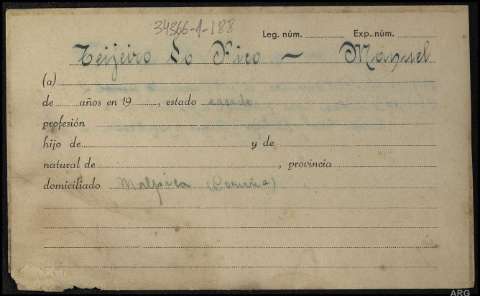 34366-A-188
Leg. núm. Exp. núm.
Teijeiro Do Pico — Manuel
(a)
de años en 19, estado casado
profesión
hijo de y de
natural de, provincia
domiciliado Malpica (Coruña)
ARG